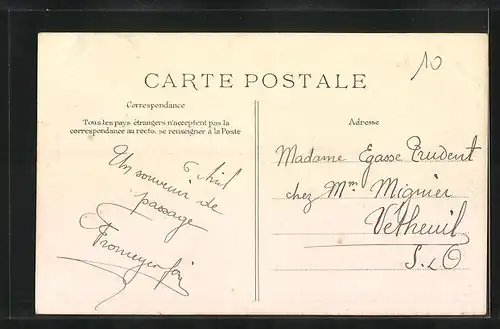 10
CARTE POSTALE
Correspondance
Tous les pays étrangers n'acceptent pas la
correspondance au recto, se renseigner à la Poste
6
Un souvenir de
passage
Adresse
Madame Egasse Prudent
chez Mm Mignier
Vétheuil
S. & O